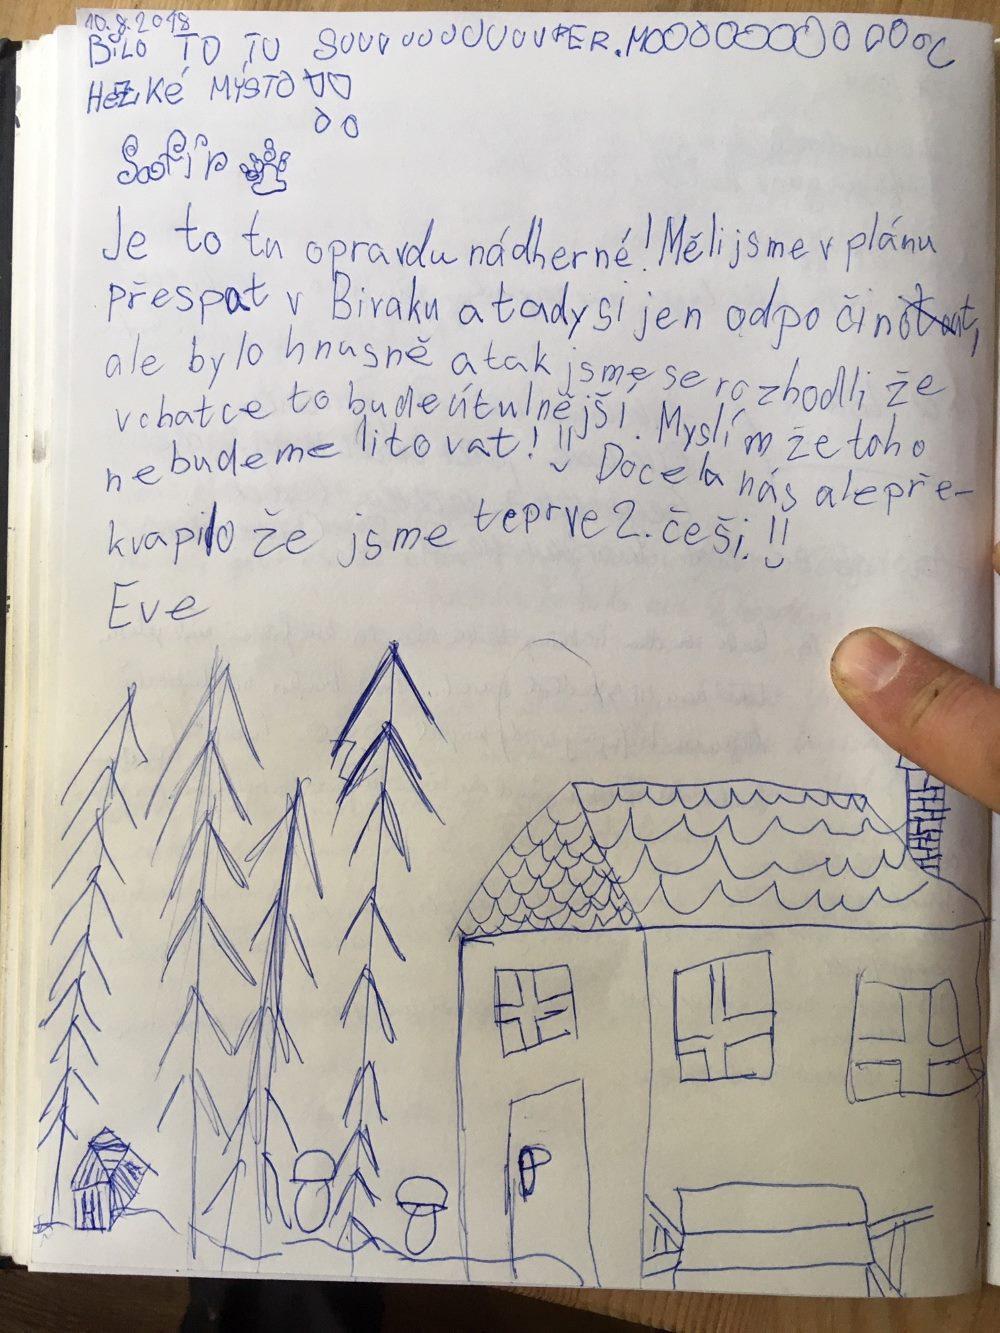 10.8.2018
BÍLO TO TU SUUUUUUUUUUPER. MOOOOOOOOOOOOC
HEZKÉ MÝSTO
Je to tu opravdu nádherné! Měli jsme v plánu
přespat v Bivaku a tady si jen odpočinout,
ale bylo hnusně a tak jsme se rozhodli že
v chatce to bude útulnější. Myslím že toho
nebudeme litovat!!! Docela nás ale pře-
kvapilo že jsme teprve 2. češi.!!
Eve